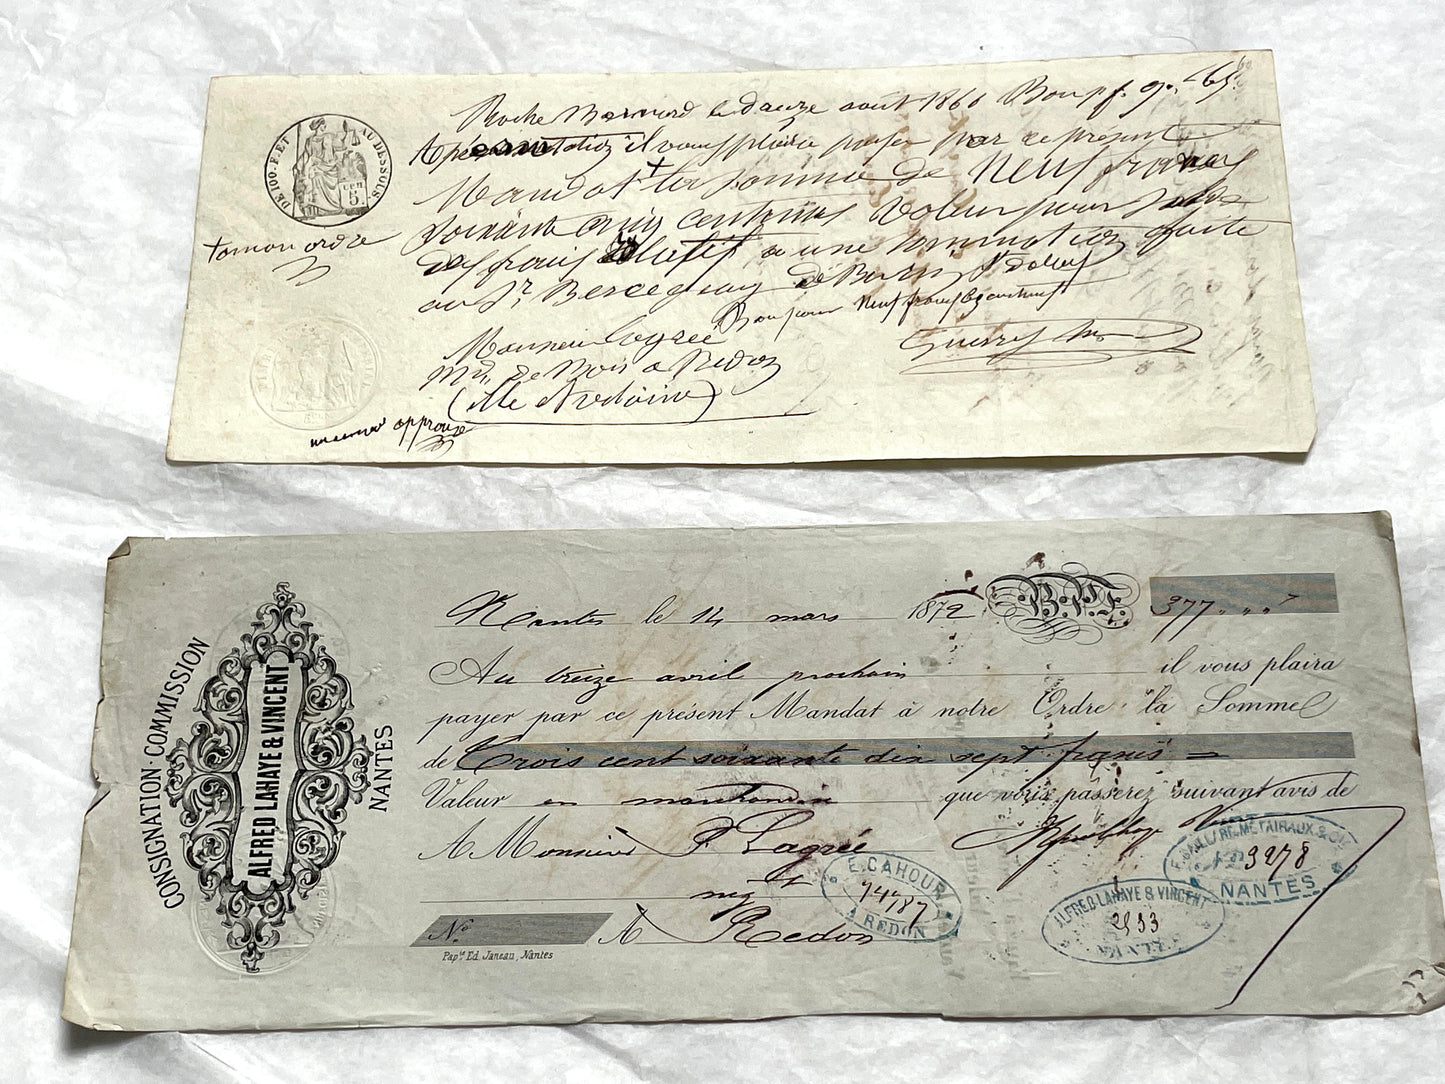 DE 100 F. ET AU DESSOUS
CEN
5.
Roche Bernard le douze août 1860 Bon pf. 9f. 65c
A présentation il vous plaira payer par ce présent
Mandat + la somme de neuf francs
soixante cinq centimes valeur pour solde
des frais relatif a une sommation faite
au Sr. Berceguay
+ a mon ordre
Bon pour neuf francs 65 centimes
Monsieur Lagréé
Md. de Bois a Redon
(ille et vilaine)
approuvé
CONSIGNATION-COMMISSION
ALFRED LAHAYE & VINCENT
NANTES
Nantes le 14 mars 1872 B.P.F. 377 " " "
Au treize avril prochain il vous plaira
payer par ce présent Mandat à notre Ordre la Somme
de Trois cent soixante dix sept francs =
Valeur en marchandise que vous passerez suivant avis de
A Monsieur P. Lagréé
ngt
Nº A Redon
Pap.ie Ed. Janeau, Nantes
E. CAHOUR
74787
A REDON
ALFRED LAHAYE & VINCENT
2933
METAIRAUX & CIE
Nº 3278
NANTES